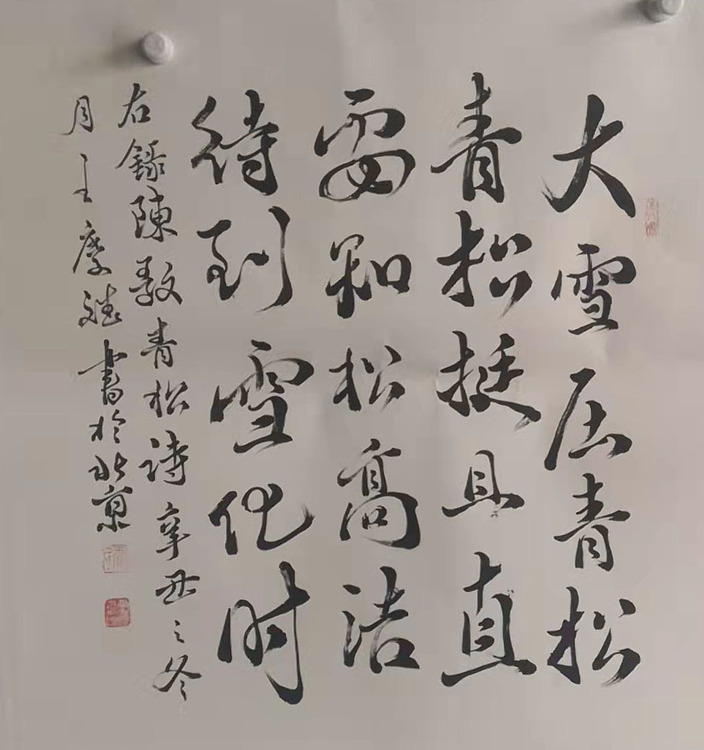 大雪压青松
青松挺且直
要知松高洁
待到雪化时
右錄陳毅青松诗辛丑之冬
月書於北京